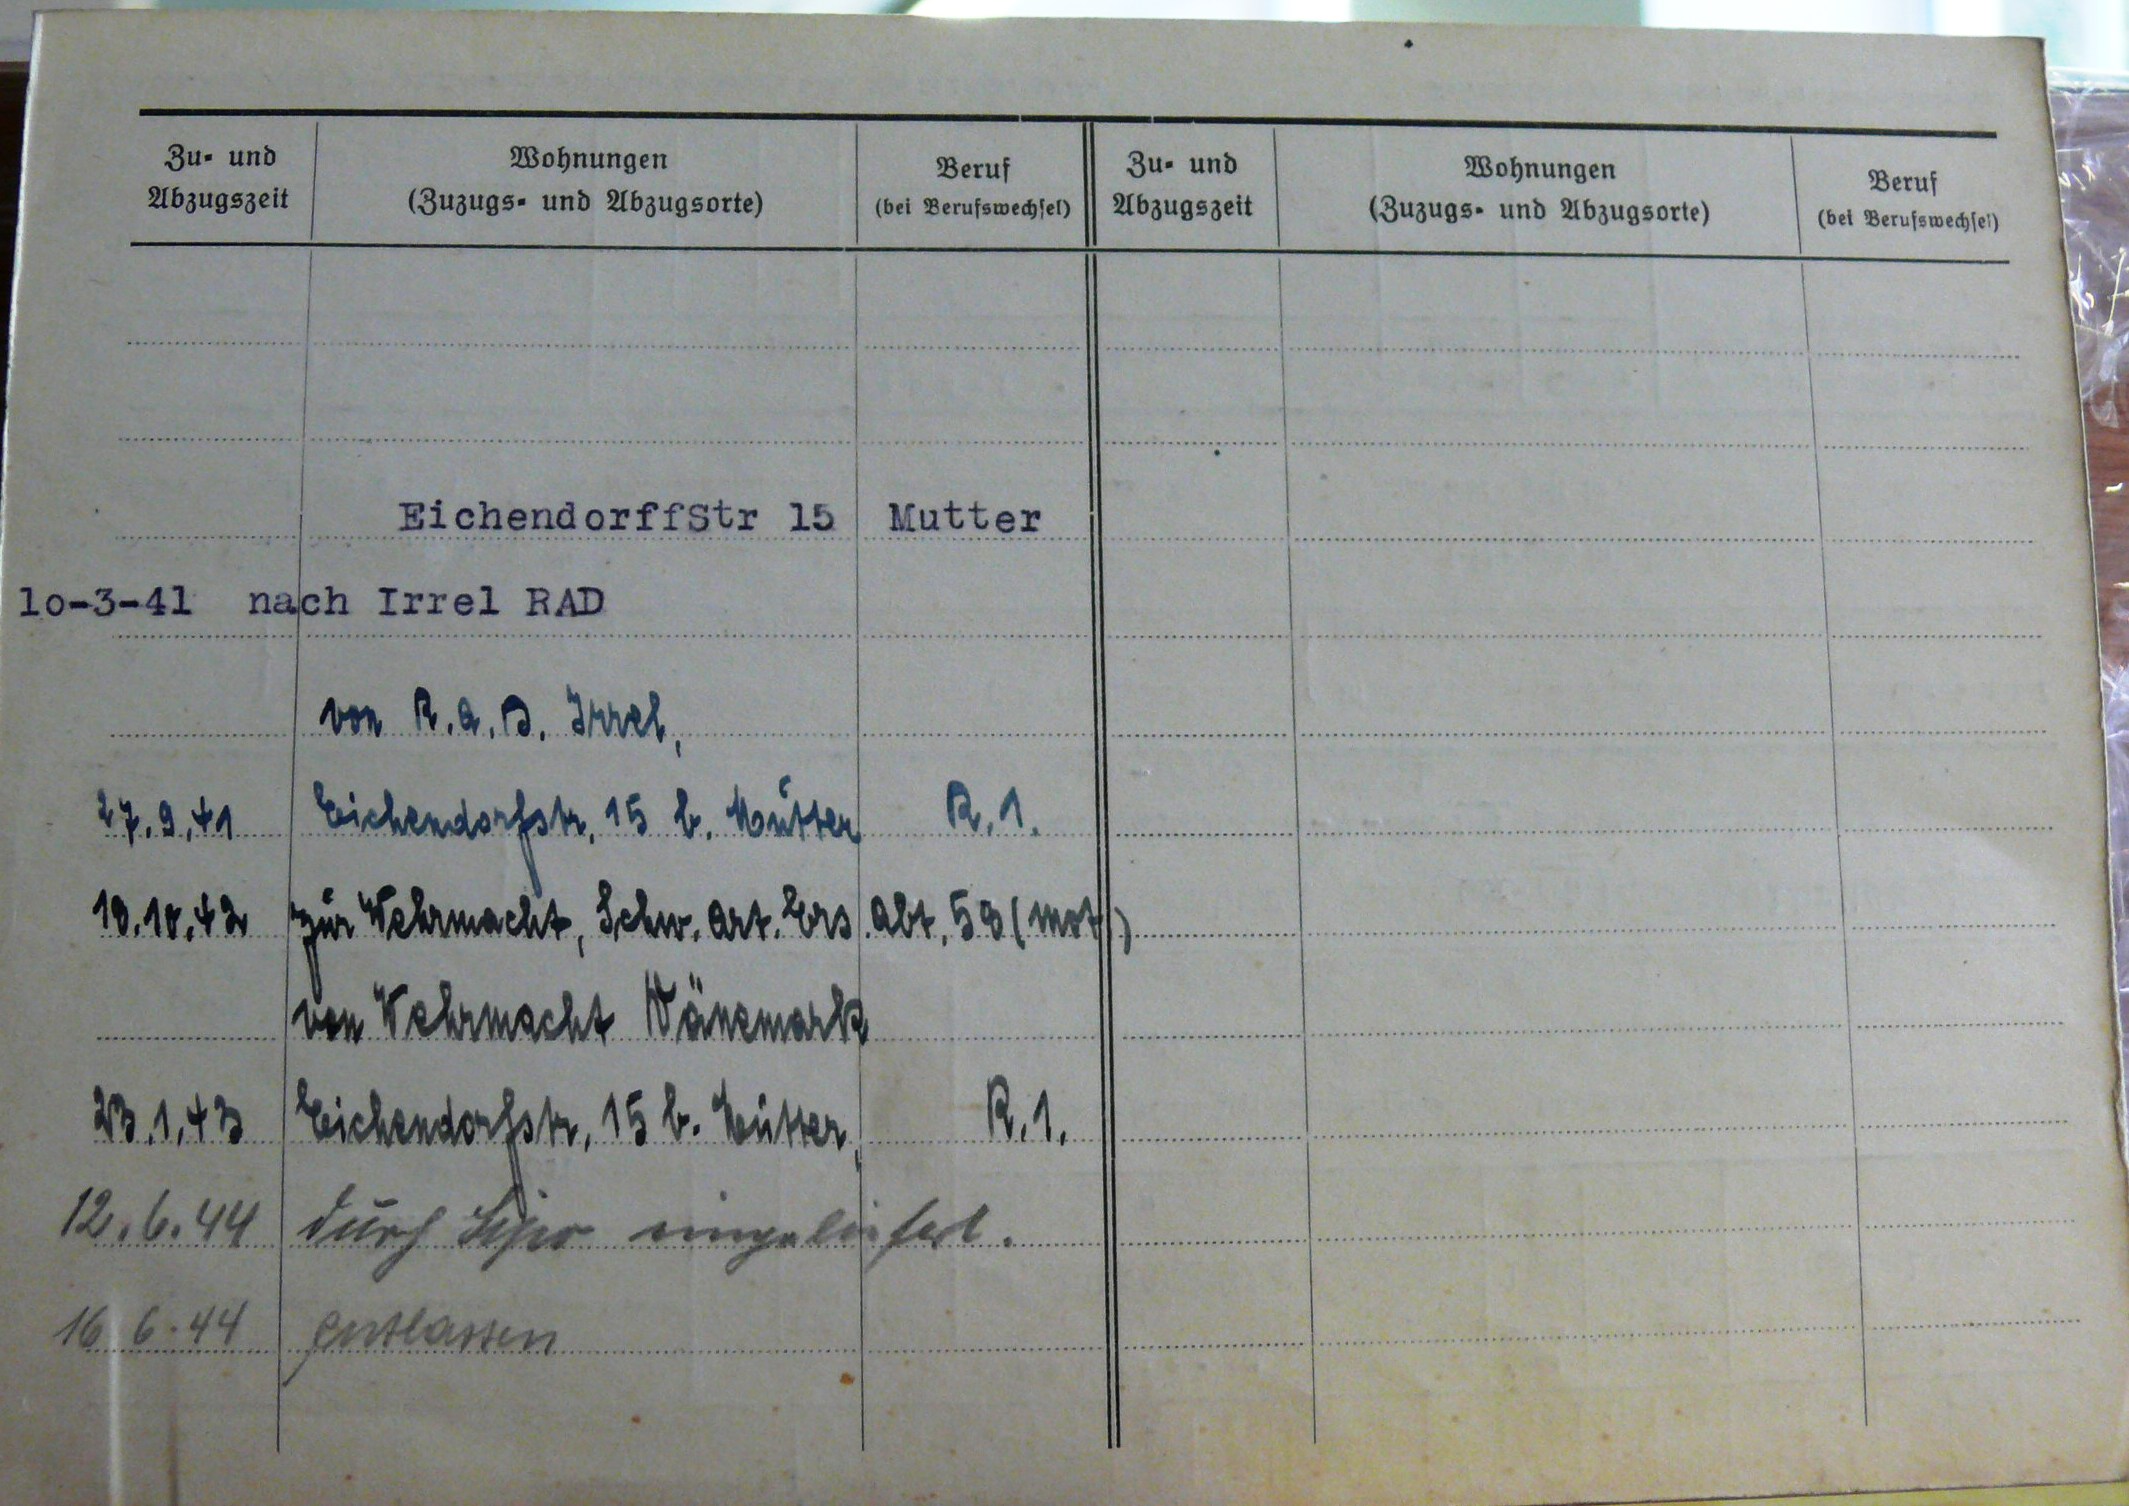 Zu- und Abzugszeit
Wohnungen (Zuzugs- und Abzugsorte)
Beruf (bei Berufswechsel)
Zu- und Abzugszeit
Wohnungen (Zuzugs- und Abzugsorte)
Beruf (bei Berufswechsel)
EichendorffStr 15 Mutter
lo-3-41 nach Irrel RAD
von R.A.D. Irrel,
27.9.41 Eichendorfstr. 15 b. Mutter R.1.
10.10.42 zur Wehrmacht, Schw. Art. Ers. Abt. 59 (mot)
von Wehrmacht Dänemark
23.1.43 Eichendorfstr. 15 b. Mutter, R.1.
12.6.44 durch Sipo eingeliefert.
16 6.44 entlassen